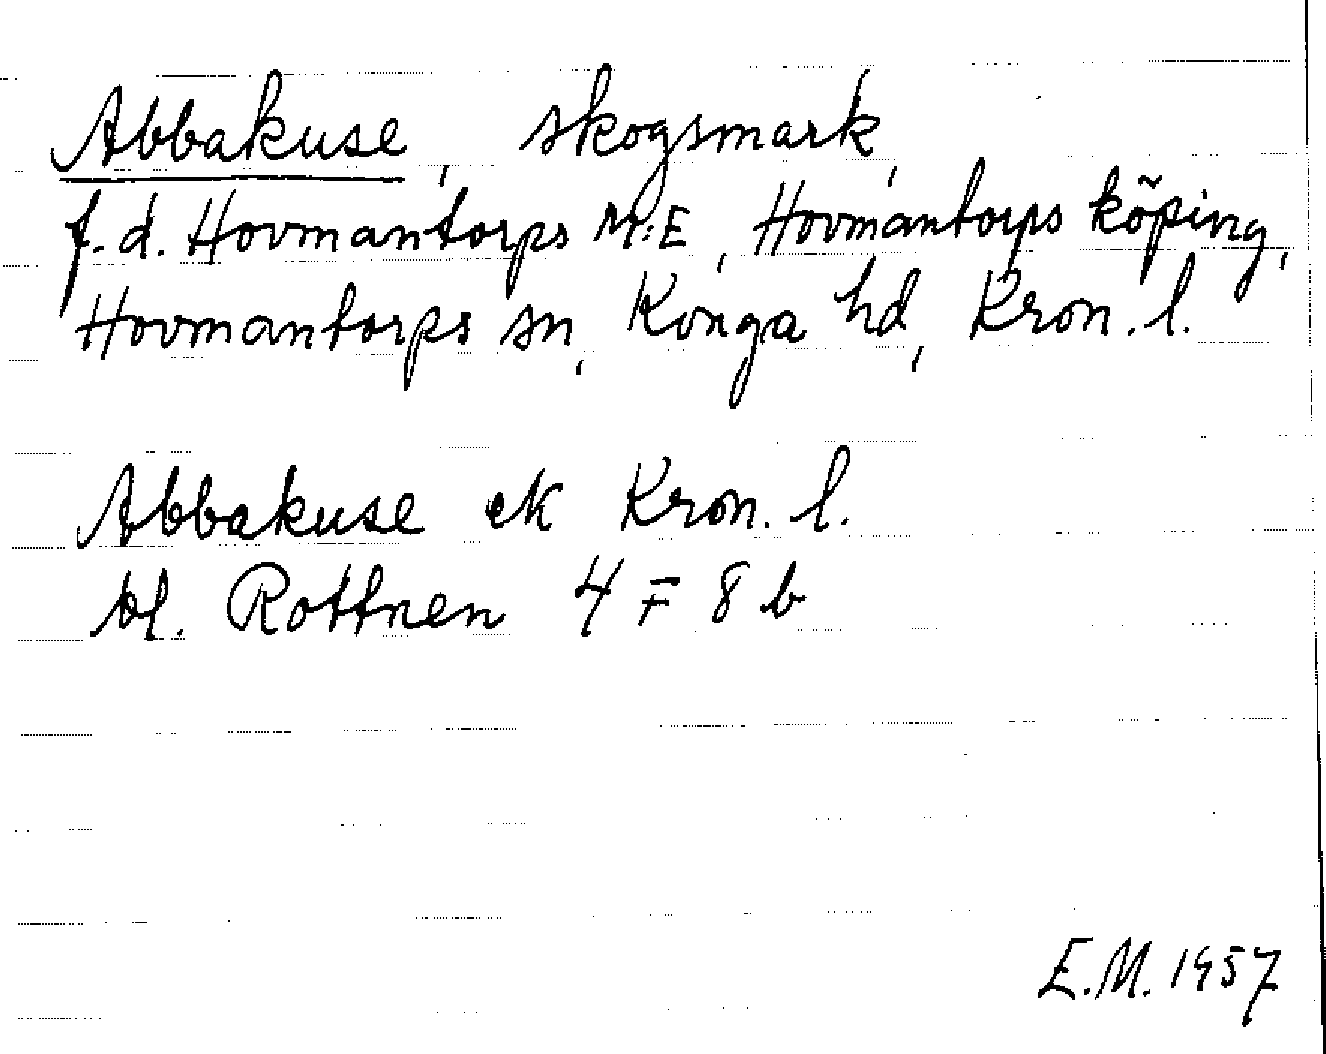 Abbakuse, skogsmark,
f.d. Hovmantorps M:E, Hovmantorps köping,
Hovmantorps sn, Konga hd, Kron. l.
Abbakuse ek Kron. l.
bl. Rottnen 4 F 8 b
E.M. 1957